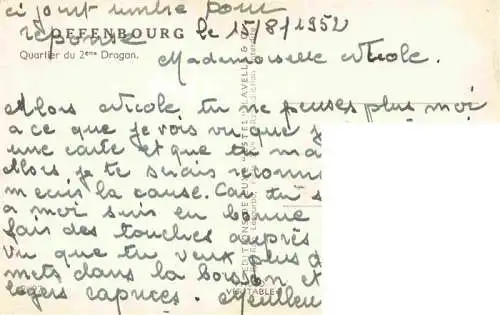 ci joint timbre pour
réponse
OFFENBOURG le 15/8/1952
Quartier du 2eme Dragon.
Mademoiselle Nicole.
Alors Nicole, tu ne penses plus moi
a ce que je vois vu que j
une carte et que tu m'a
Alors je te serais reconn
m'ecris la cause. Car tu s
a moi suis en bonne
fais des touches auprès
vu que tu veux plus d
mets dans la boisson et
legers caprices. Meilleu
VERITABLE